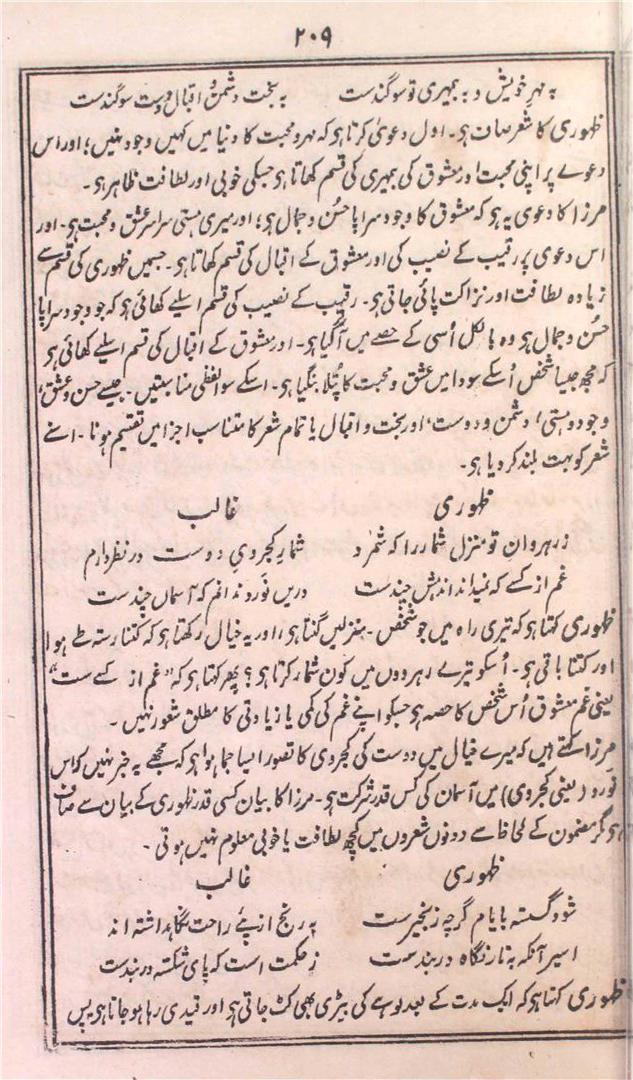 ۲۰۹
به مهر خویش و به بیمهری تو سوگندست به بخت دشمن و اقبال دوست سوگندست
ظهوری کا شعر صاف ہو۔ اول دعویٰ کرتا ہو کہ مہر و محبت کا دنیا میں کہیں وجود نہیں؛ اور اس
دعوے پر اپنی محبت اور معشوق کی بیمہری کی قسم کھاتا ہو جسکی خوبی اور لطافت ظاہر ہو۔
مرزا کا دعویٰ یہ ہو کہ معشوق کا وجود سراپا حُسن و جمال ہو؛ اور میری ہستی سراسر عشق و محبت ہو۔ اور
اس دعوی پر رقیب کے نصیب کی اور معشوق کے اقبال کی قسم کھاتا ہو۔ جسمیں ظہوری کی قسم سے
زیادہ لطافت اور نزاکت پائی جاتی ہو۔ رقیب کے نصیب کی قسم اسلیے کھائی ہو کہ جو وجود سراپا
حُسن و جمال ہو وہ بالکل اُسی کے حصے میں آگیا ہو۔ اور معشوق کے اقبال کی قسم اسلیے کھائی ہو
کہ مجھ جیسا شخص اُسکے سودا میں عشق و محبت کا پُتلا بنگیا ہو۔ اسکے سوا لفظی مناسبتیں۔ جیسے حسن و عشق،
وجود و ہستی، دشمن و دوست، اور بخت و اقبال یا تمام شعر کا متناسب اجزا میں تقسیم ہونا۔ اسنے
شعر کو بہت بلند کردیا ہو۔
ظہوری غالب
ز رہروانِ تو منزل شمار را که شمرد شمارِ کجرویِ دوست در نظر دارم
غم از کسے که نمیداند اندہش چندست دریں نَورد ندانم که آسماں چندست
ظہوری کہتا ہو کہ تیری راہ میں جو شخص۔ منزلیں گنتا ہو؛ اور یہ خیال رکھتا ہو کہ کتنا رستہ طے ہوا
اور کتنا باقی ہو۔ اُسکو تیرے رہرووں میں کون شمار کرتا ہو؟ پھر کہتا ہو کہ "غم از کسے ست"
یعنی غم معشوق اُس شخص کا حصہ ہو جسکو اپنے غم کی کمی یا زیادتی کا مطلق شعور نہیں۔
مرزا کہتے ہیں کہ میرے خیال میں دوست کی کجروی کا تصور ایسا جما ہوا ہو کہ مجھے یہ خبر نہیں کہ اس
نَورد (یعنی کجروی) میں آسمان کی کس قدر شرکت ہو۔ مرزا کا بیان کسی قدر ظہوری کے بیان سے صاف
ہو مگر مضمون کے لحاظ سے دونوں شعروں میں کچھ لطافت یا خوبی معلوم نہیں ہوتی۔
ظہوری غالب
شود گسسته بایام گرچه زنجیرست به رنج از پئے راحت نگاہداشته اند
اسیر آنکه به تار نگاه در بندست ز حکمت است که پای شکسته در بندست
ظہوری کہتا ہو کہ ایک مدت کے بعد لوہے کی بیڑی بھی کٹ جاتی ہو اور قیدی رہا ہو جاتا ہو پس